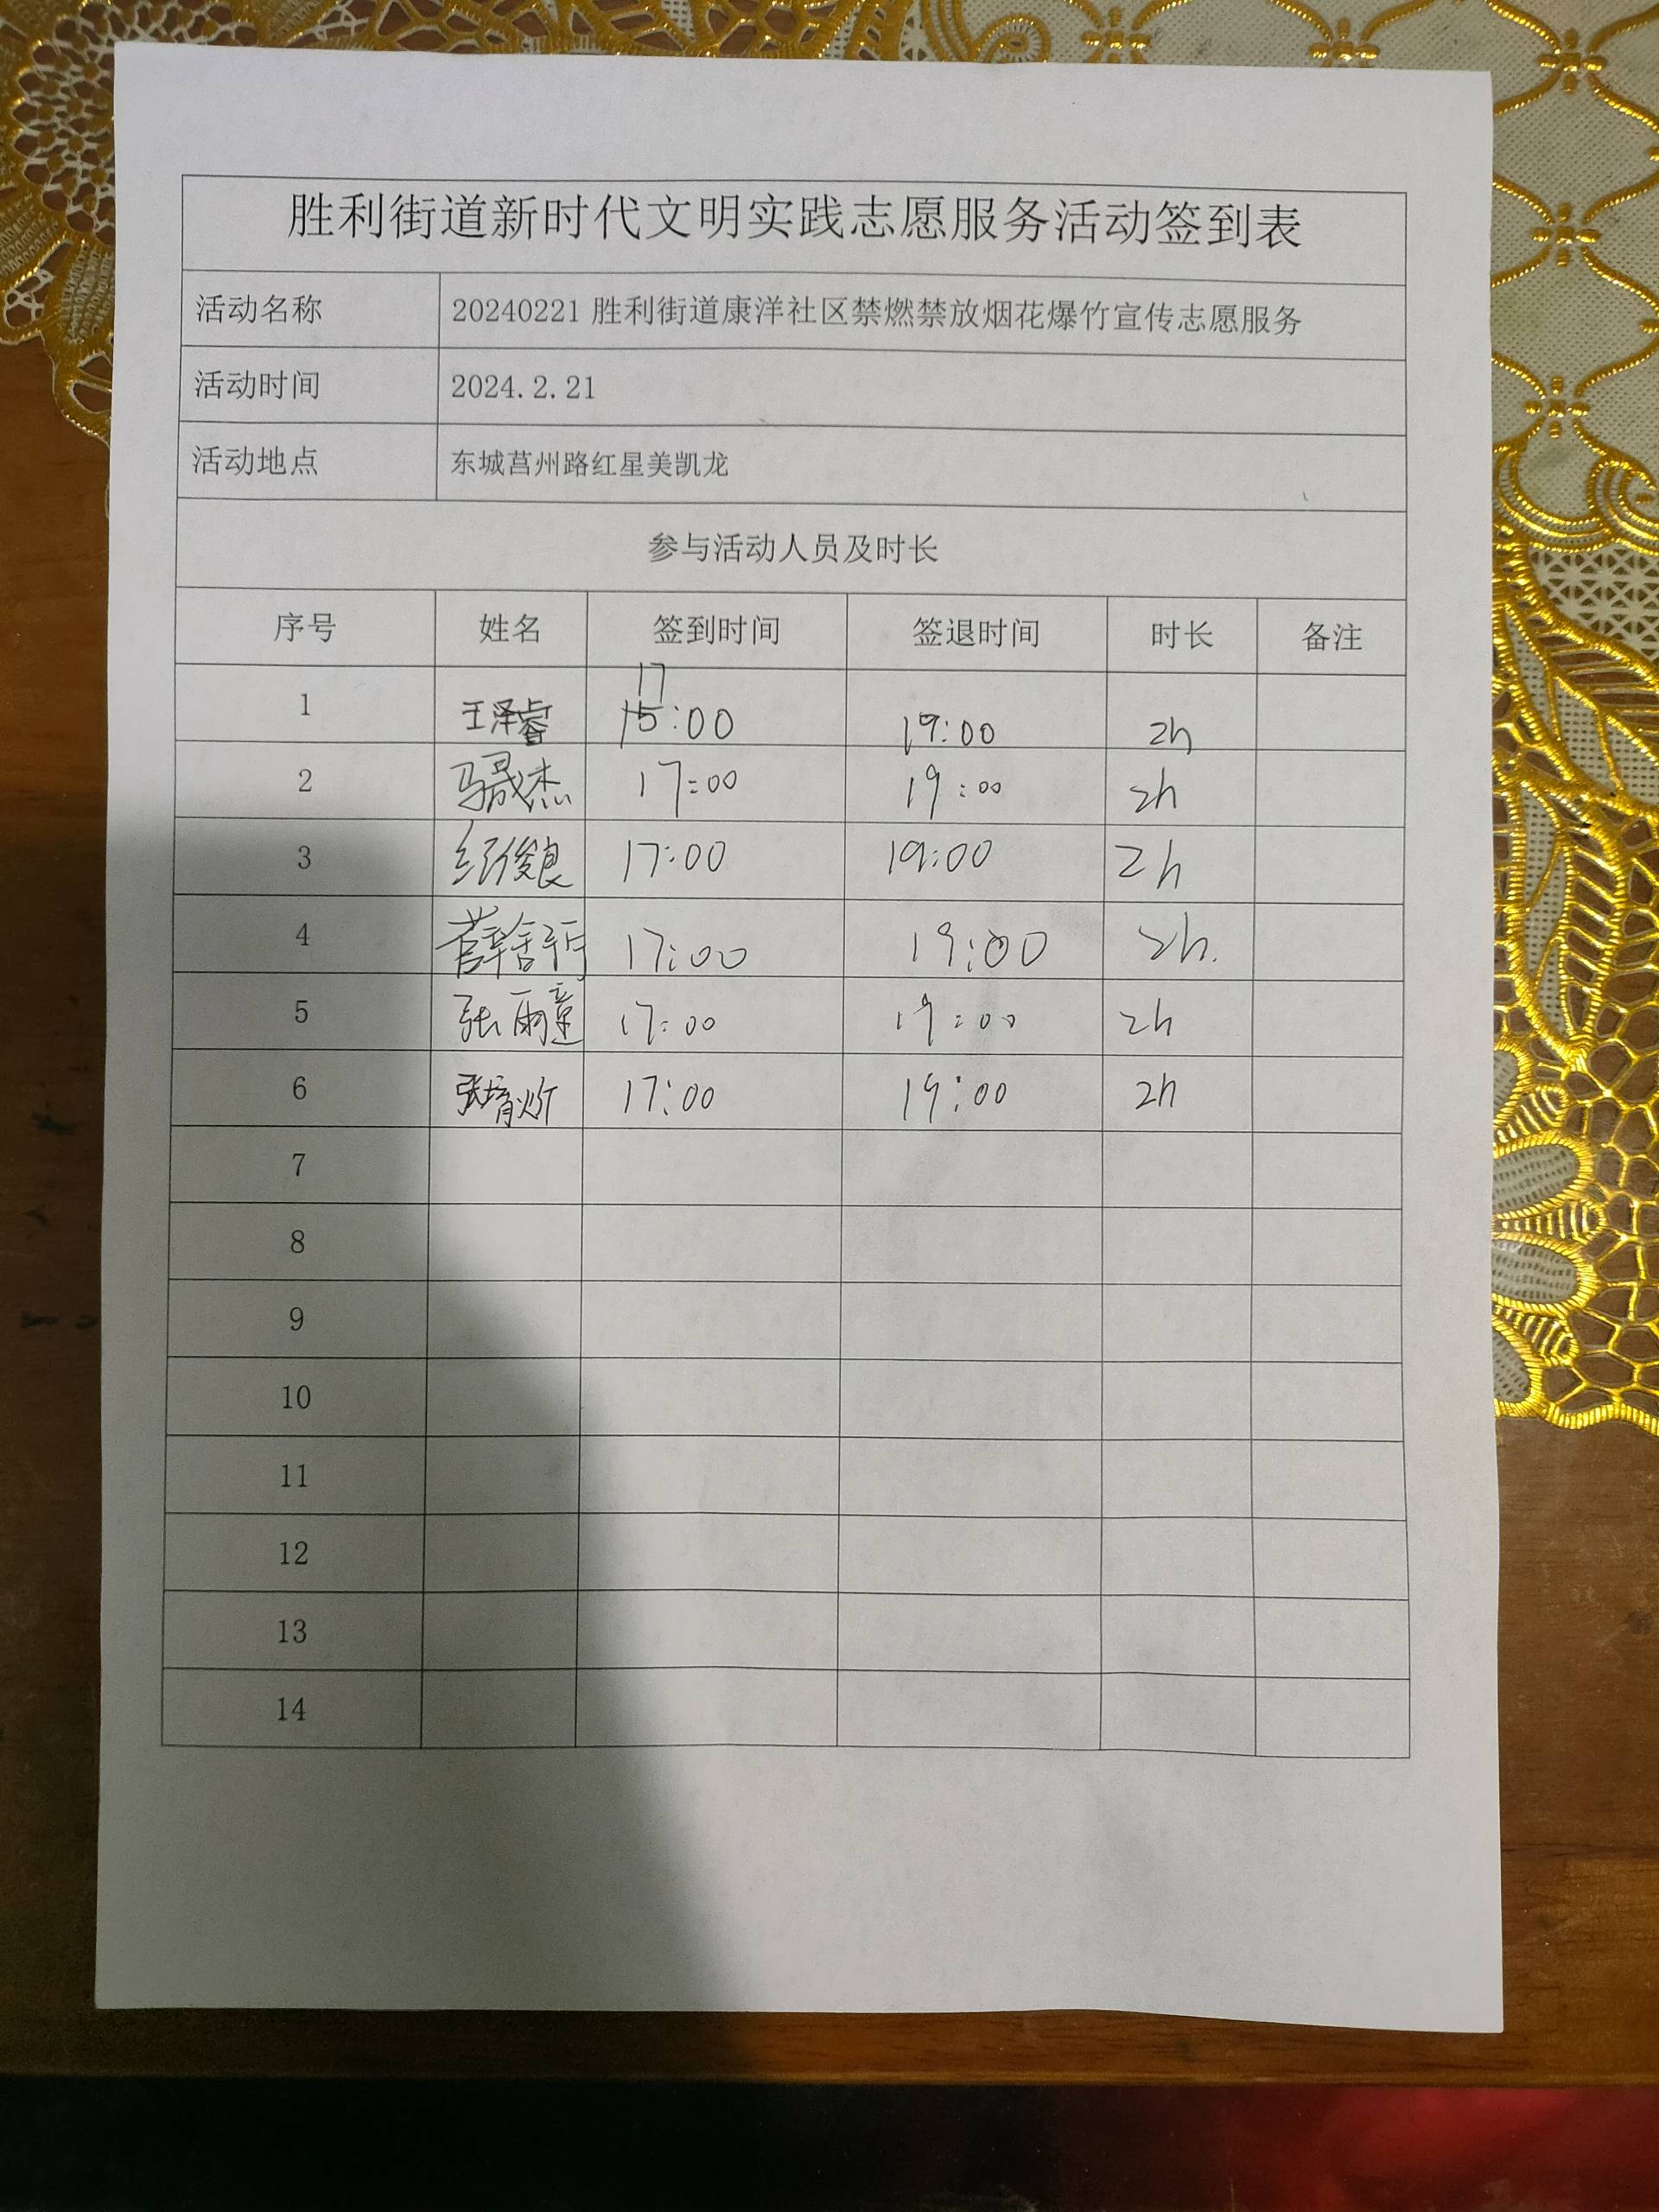 胜利街道新时代文明实践志愿服务活动签到表
活动名称 20240221 胜利街道康洋社区禁燃禁放烟花爆竹宣传志愿服务
活动时间 2024.2.21
活动地点 东城莒州路红星美凯龙
参与活动人员及时长
序号 姓名 签到时间 签退时间 时长 备注
17
1 王泽睿 15:00 19:00 2h
2 马晟杰 17:00 19:00 2h
3 纪俊良 17:00 19:00 2h
4 17:00 19:00 2h.
5 张雨童 17:00 19:00 2h
6 17:00 19:00 2h
7
8
9
10
11
12
13
14